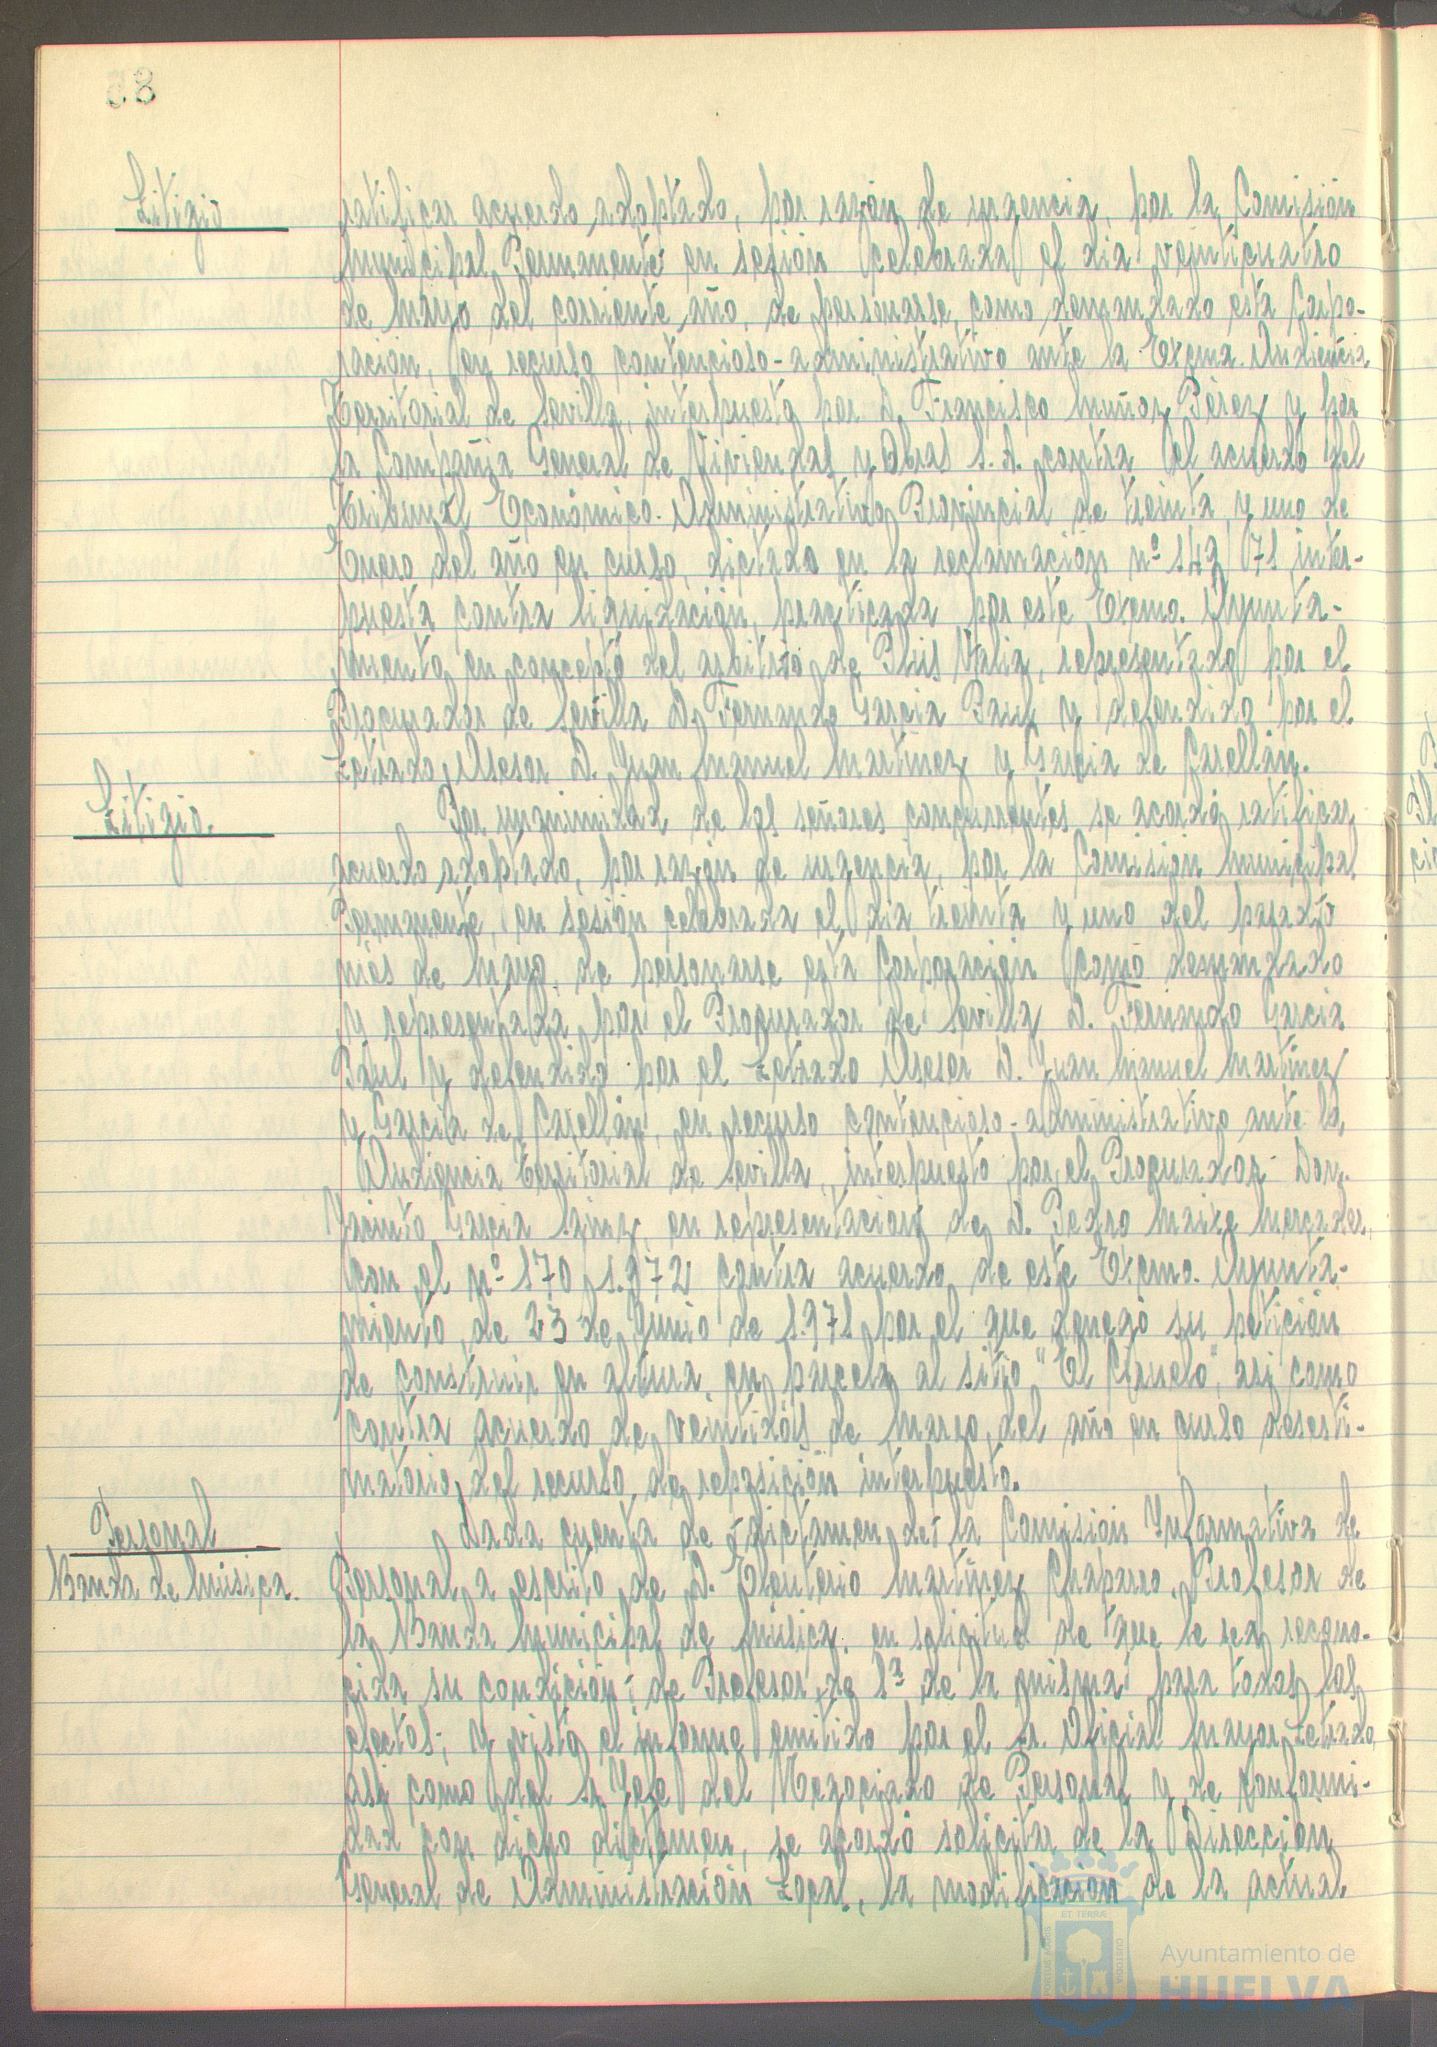 58
Litigio
ratificar acuerdo adoptado, por razón de urgencia, por la Comisión
Municipal Permanente en sesión celebrada el día veinticuatro
de Mayo del corriente año, de personarse, como demandado esta Corpo-
ración, en recurso contencioso-administrativo ante la Excma. Audiencia
Territorial de Sevilla, interpuesto por D. Francisco Muñoz Pérez y por
la Compañía General de Viviendas y Obras S.A. contra el acuerdo del
Tribunal Económico-Administrativo Provincial de treinta y uno de
Enero del año en curso, dictado en la reclamación nº 142/71 inter-
puesta contra liquidación practicada por este Excmo. Ayunta-
miento en concepto del arbitrio de Plus Valia, representado por el
Procurador de Sevilla D. Fernando Garcia Paul y defendido por el
Letrado Asesor D. Juan Manuel Martinez y Garcia de Casellán.
Litigio.
Por unanimidad de los señores concurrentes se acordó ratificar
acuerdo adoptado, por razón de urgencia, por la Comisión Municipal
Permanente, en sesión celebrada el dia treinta y uno del pasado
mes de Mayo, de personarse esta Corporación como demandado
y representada por el Procurador de Sevilla D. Fernando Garcia
Paul y defendido por el Letrado Asesor D. Juan Manuel Martinez
y Garcia de Casellán, en recurso contencioso-administrativo ante la
Audiencia Territorial de Sevilla, interpuesto por el Procurador Don
Jacinto Garcia Sainz, en representación de D. Pedro Mercader,
con el nº 170/1.972 contra acuerdo de este Excmo. Ayunta-
miento de 23 de Junio de 1.971 por el que denegó su petición
de construir en altura en parcela al sitio "El Ciruelo", asi como
contra acuerdo de veintidós de Marzo del año en curso desesti-
matorio del recurso de reposición interpuesto.
Personal
Banda de Música.
Dada cuenta de dictamen de la Comisión Informativa de
Personal a escrito de D. Eleuterio Martinez Chaparro, Profesor de
la Banda Municipal de Música, en solicitud de que le sea recono-
cida su condición de Profesor de 1ª de la misma para todos los
efectos; y visto el informe emitido por el Sr. Oficial Mayor Letrado,
asi como del Sr. Jefe del Negociado de Personal y de conformi-
dad con dicho dictamen, se acordó solicitar de la Dirección
General de Administración Local, la modificación de la actual
Ayuntamiento de
HUELVA